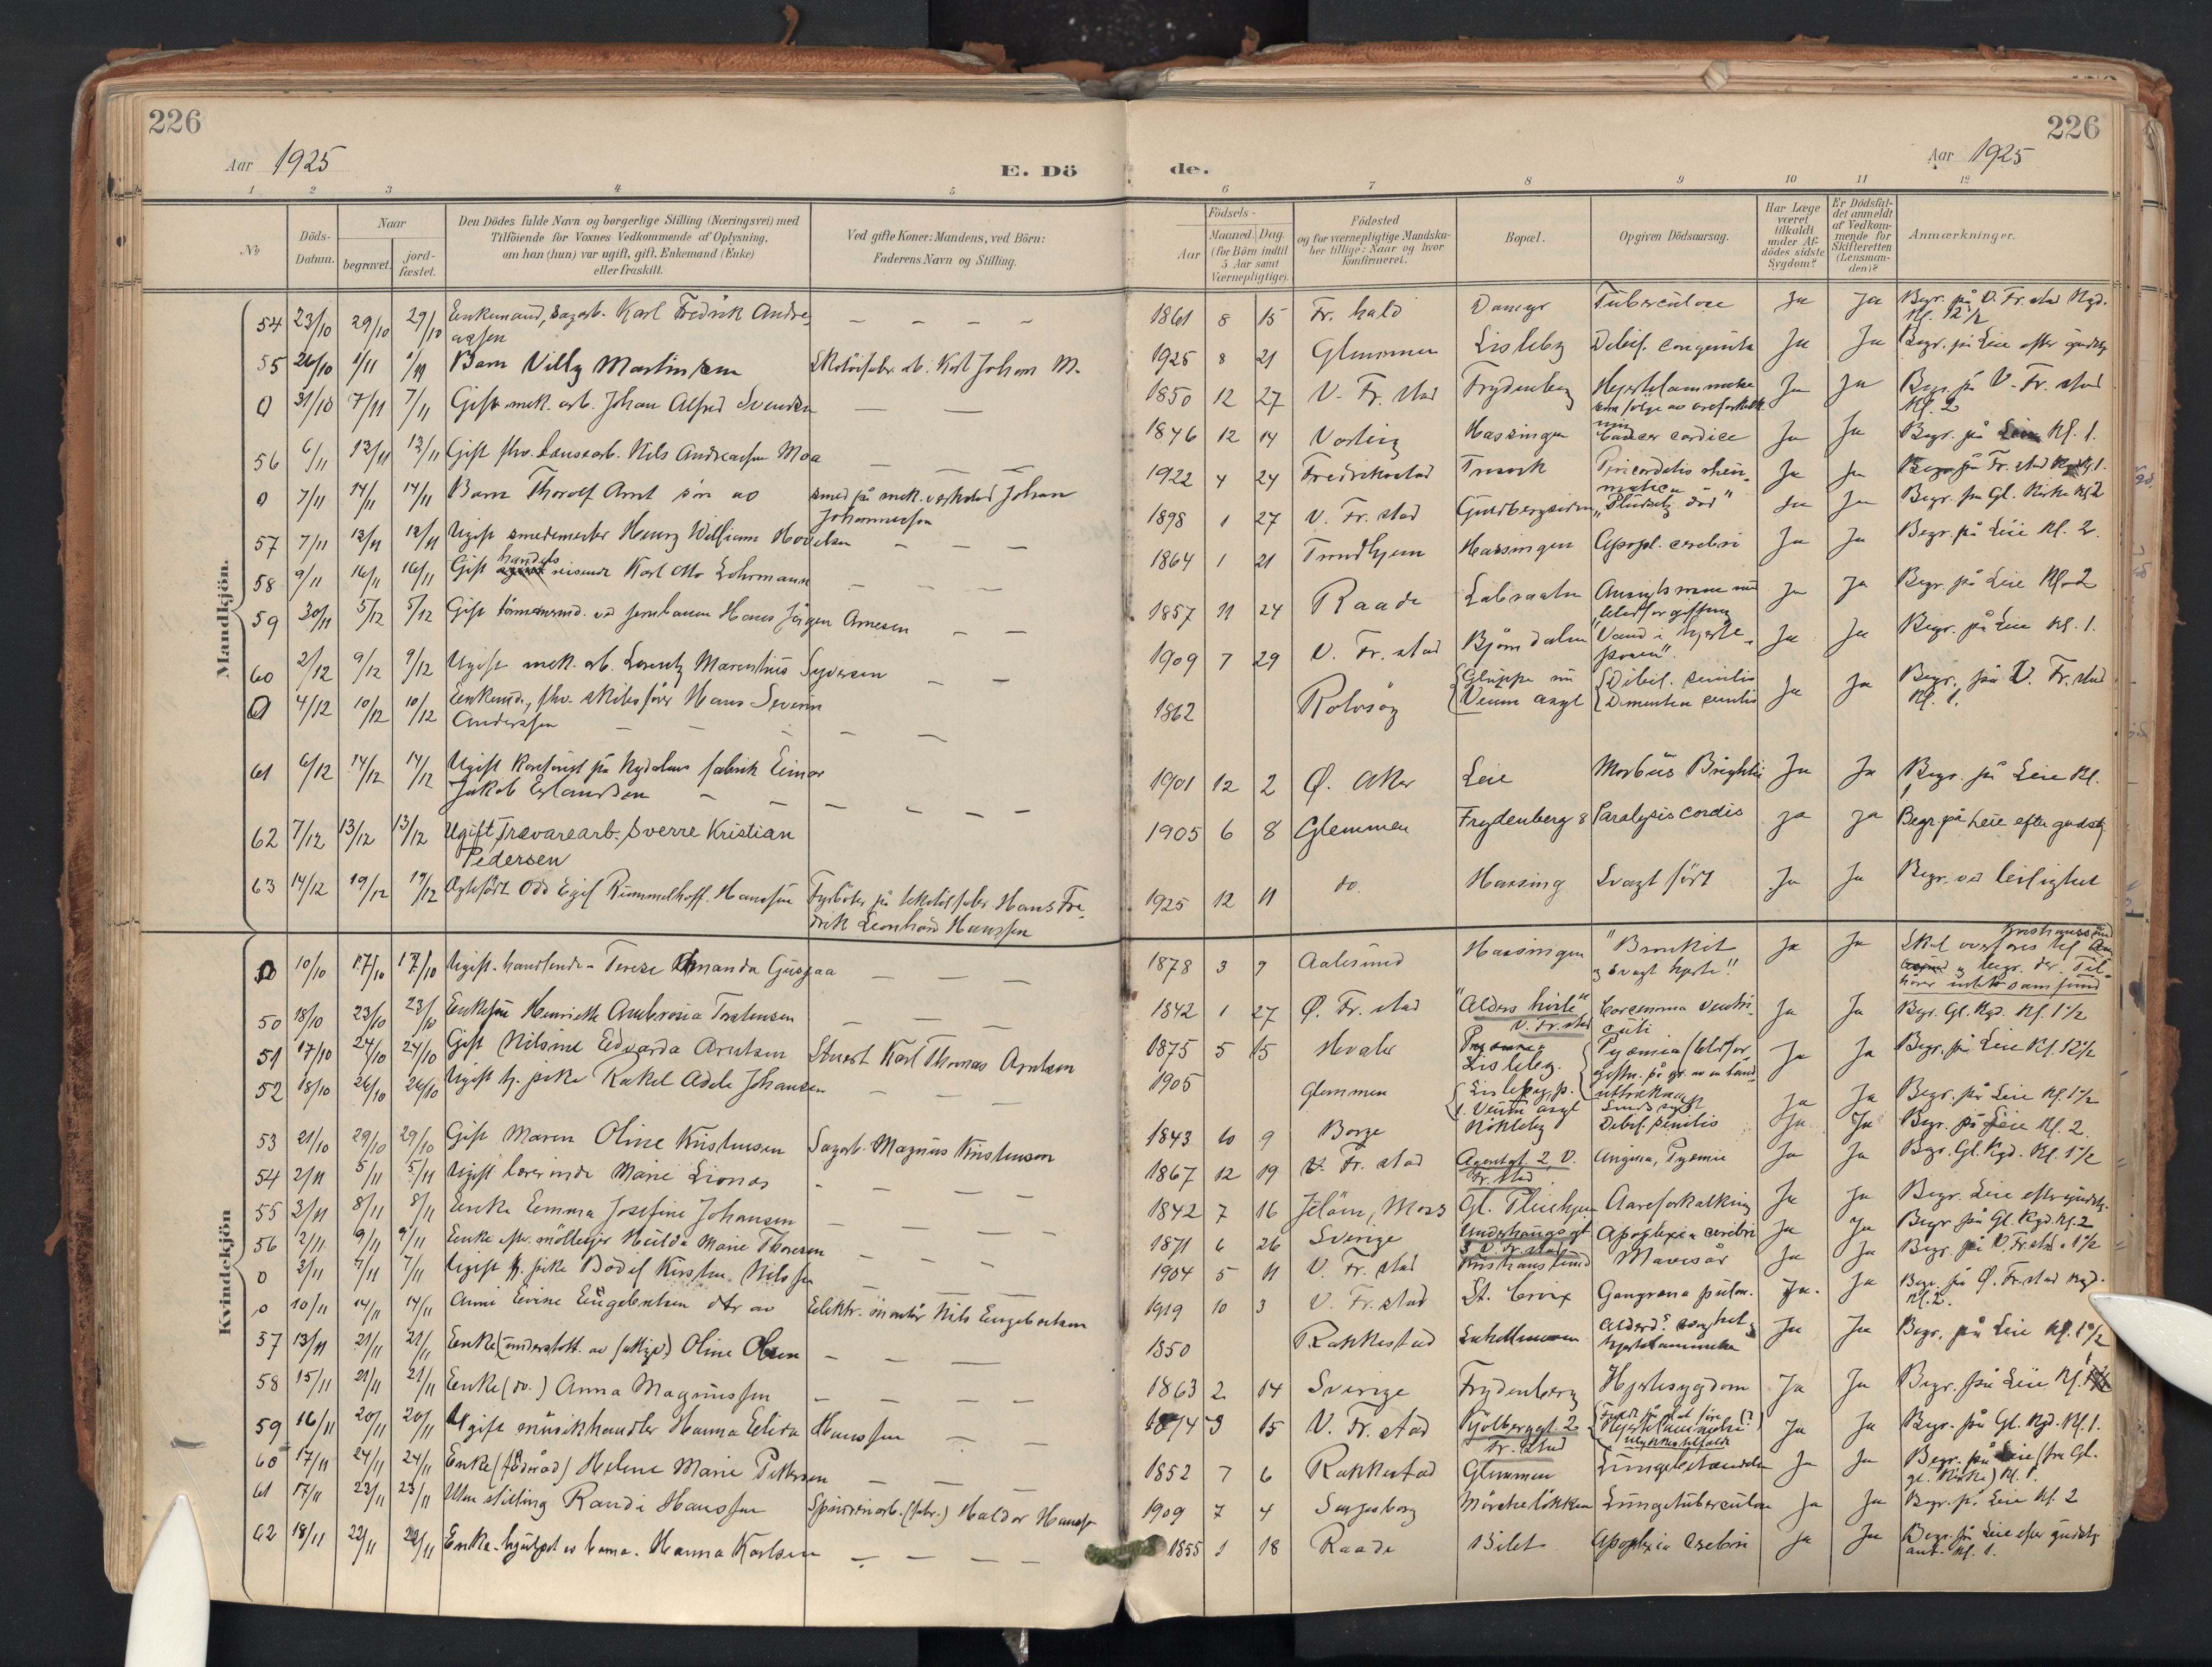 226
226
Aar 1925
E. Dö
de.
Aar 1925
1 2 3 4 5 6 7 8 9 10 11 12
No
Döds-
Datum.
Naar
begravet.
jord-
fæstet.
Den Dödes fulde Navn og borgerlige Stilling (Næringsvei) med
Tilföiende for Voxnes Vedkommende af Oplysning,
om han (hun) var ugift, gift, Enkemand (Enke)
eller fraskilt.
Ved gifte Koner: Mandens, ved Börn:
Faderens Navn og Stilling.
Födsels-
Aar
Maaned. Dag
(for Börn indtil
5 Aar samt
Værnepligtige).
Födested
og for værnepligtige Mandska-
ber tillige: Naar og hvor
konfirmeret.
Bopæl.
Opgiven Dödsaarsag.
Har Læge
været
tilkaldt
under Af-
dödes sidste
Sygdom?
Er Dödsfal-
det anmeldt
af Vedkom-
mende for
Skifteretten
(Lensman-
den)?
Anmærkninger.
Mandkjön.
54 23/10 29/10 29/10 Enkemand, sagarb. Karl Fredrik Andre-
assen
1861 8 15 Fr. hald Damyr Tuberculose Ja Ja Begr. på V. Fr.stad Kgd.
Kl. 12 1/2
55 26/10 1/11 1/11 Barn Villy Martinsen Skotöifabr. ab. Karl Johan M.
1925 8 21 Glemmen Lisleby Debil. congenita Ja Ja Begr. på Leie efter gudstj.
0 31/10 7/11 7/11 Gift mek. arb. Johan Alfred Svendsen
1850 12 27 V. Fr. stad Frydenberg Hjertelammelse
som følge av areforkalk
Ja Ja Begr. på V. Fr. stad
Kl. 2
56 6/11 13/11 13/11 Gift fhv. bruksarb. Nils Andreassen Moa
1846 12 14 Hassingen Cancer Ja Ja Begr. på Kl. 1.
0 7/11 14/11 14/11 Barn Thorolf Arnt sön av smed på mek. verksted Johan
Johannessen
1922 4 24 Fredrikstad Trosvik Pericarditis rheu-
matica Ja Ja Begr. på Fr. stad
57 7/11 12/11 12/11 Ugift smedemester Henry William Hovelsen
1898 1 27 V. Fr. stad Guldbergsiden „Pludselig död" Ja Ja Begr. fra Gl. Kirke Kl 2
58 9/11 16/11 16/11 Gift handels reisende Karl Otto Lohrmann
1864 1 21 Trondhjem Hassingen Apopl. cerebri Ja Ja Begr. på Leie Kl. 2.
59 30/11 5/12 5/12 Gift tömmerm. ved jernbanen Hans Jörgen Arnesen
1857 11 24 Raade Labraaten Ansigtsrosen med
blodforgiftning Ja Ja Begr. på Leie Kl. 2
60 2/12 9/12 9/12 Ugift mek. arb. Lorentz Marentius Syversen
1909 7 29 V. Fr. stad Bjørndalen „Vand i hjerte-
posen". Ja Ja Begr. på Leie Kl. 1.
0 4/12 10/12 10/12 Enkemd., fhv. skibsförer Hans Severin
Anderssen
1862 Rolvsøy Gluppe nu
Veum asyl Debil. senilis
Dementia senilis Ja Ja Begr. på V. Fr. stad
Kl. 1.
61 6/12 14/12 14/12 Ugift kontorist på Nydalens fabrik Einar
Jakob Erlandsen
1901 12 2 Ø. Aker Leie Morbus Brightii Ja Ja Begr. på Leie Kl.
62 7/12 13/12 13/12 Ugift Trævarearb. Sverre Kristian
Pedersen
1905 6 8 Glemmen Frydenberg 8 Paralysis cordis ja ja Begr. på Leie efter gudstj.
63 14/12 19/12 19/12 Egtefödt Odd Egil Rummelhoff Hanssen Fyrböter på skotöifabr. Hans Fre-
drik Leonhard Hanssen
1925 12 11 do. Hassing Svagt född Ja Ja Begr. ved leilighet
Kvindekjön
0 10/10 17/10 17/10 Ugift. handlende Terese Amanda Gusgaa
1878 3 9 Aalesund Hassingen "Bronkit
og svagt hjerte" Ja Ja Skal overføres til Kristiansund
og begr. der. Til-
hører samfund
50 18/10 23/10 23/10 Enkefru Henriette Ambrosia Torstensen
1842 1 27 Ø. Fr. stad "Alders hvile"
V. Fr. stad Carcinoma ventri-
culi Ja Ja Begr. Gl. Kgd. Kl. 1 1/2
51 17/10 24/10 24/10 Gift Nilsine Edvarda Arntsen Stuert Karl Thomas Arntsen
1875 5 15 Hvaler Lisleby. Pyæmia (blodfor-
giftn. på gr. av en tand-
uttrækning Ja Ja Begr. på Leie Kl. 12 1/2
52 18/10 26/10 26/10 Ugift tj. pike Rakel Adele Johansen
1905 Glemmen Lisleby, p.
t. Veum asyl Sindssygd. Ja Ja Begr. på Leie Kl. 1 1/2
53 21/10 29/10 29/10 Gift Maren Oline Kristensen Sagarb. Magnus Kristensen
1843 10 9 Borge Nökleby Debil. senilis Ja Ja Begr. på Leie Kl. 2.
54 2/11 5/11 5/11 Ugift lærerinde Marie Lionæs
1867 12 19 V. Fr. stad Agentgt. 2, V.
Fr. stad Angina, Pyæmie Ja Ja Begr. Gl. Kgd. Kl. 1 1/2
55 3/11 8/11 8/11 Enke Emma Josefine Johansen
1842 7 16 Jelöen, Moss Gl. Pleiehjem Aareforkalkning Ja Ja Begr. Leie efter gudstj.
56 2/11 9/11 9/11 Enke efter möllegr Hulda Marie Thoresen
1871 6 26 Sverige Apoplexia cerebri Ja Ja Begr. på Gl. Kgd. Kl. 2
0 3/11 7/11 7/11 Ugift tj. pike Bodil Kirsten Nilssen
1904 5 11 V. Fr. stad Kristianslund Mavesår Ja Ja Begr. på V. Fr. stad 1 1/2
0 10/11 14/11 14/11 Anni Evine Engebretsen dtr av Elektr. montör Nils Engebretsen
1919 10 3 V. Fr. stad St. Croix Gangrena pulm. Ja. Ja Begr. på Ø. Fr. stad Kgd.
Kl. 2.
57 13/11 21/11 21/11 Enke (understött. av fattigv.) Oline Olsen
1850 Rakkestad
hjertelammelse Ja Ja Begr. på Leie Kl. 1 1/2
58 15/11 21/11 21/11 Enke (do.) Anna Magnussen
1863 2 14 Sverige Frydenberg Hjertesygdom Ja Ja Begr. på Leie Kl.
59 16/11 20/11 20/11 Ugift musikhandler Hanna Elida Hanssen
1874 3 15 V. Fr. stad Kjölberggt. 2
Fr. stad
ulykkestilfælde Ja Ja Begr. på Gl. Kgd. Kl. 1.
60 17/11 24/11 24/11 Enke (föderåd) Helene Marie Pettersen
1852 7 6 Rakkestad Glemmen Lungebetændelse Ja Ja Begr. på Leie (fra Gl.
gl. Kirke) Kl. 1.
61 17/11 23/11 23/11 Uten stilling Randi Hanssen Spinneriarb. (fabr.) Haldor Hanss
1909 7 4 Sarpsborg Mörkelökken Lungetuberculose Ja Ja Begr. på Leie Kl. 2
62 18/11 22/11 22/11 Enke. hjulpet av barna. Hanna Karlsen
1855 1 18 Raade Bilet Apoplexia cerebri Ja Ja Begr. på Leie efter gudstj.
ant. Kl. 1.